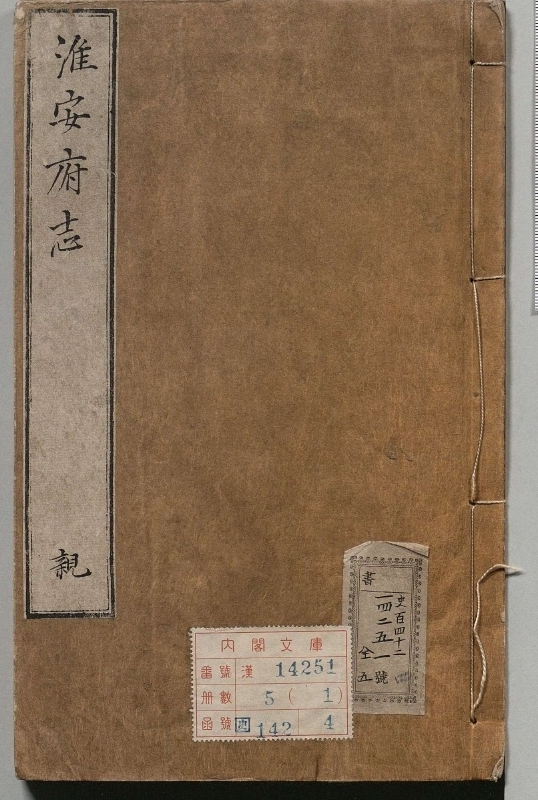 淮安府志
親
書
史百四十二
一四二五一號
全五
内閣文庫
番號 漢 14251
冊數 5 ( 1 )
函號 史 142 4